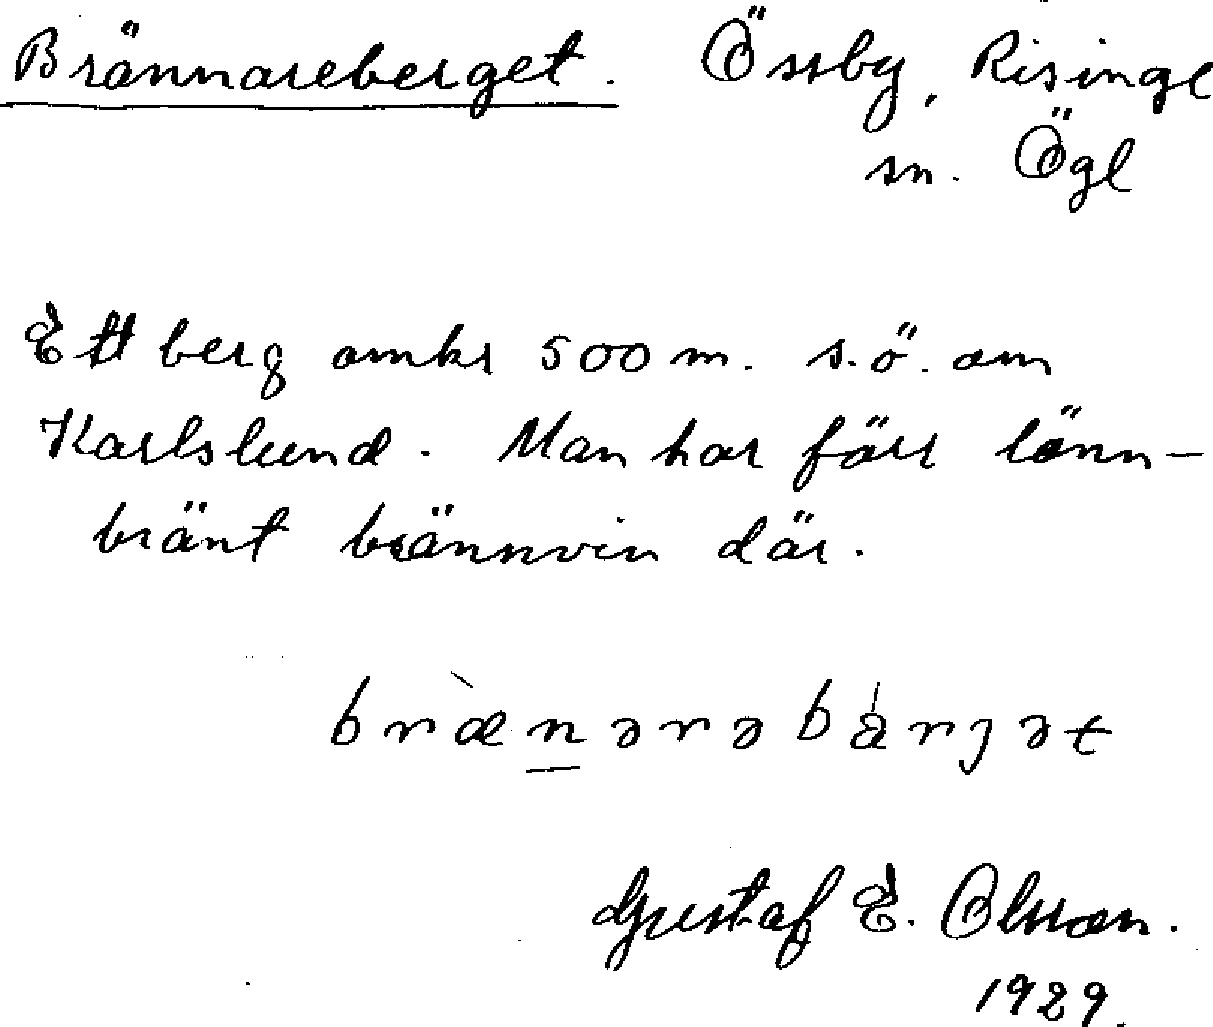 Brännareberget. Össby, Risinge
sn. Ögl
Ett berg omkr 500 m. s.ö. om
Karlslund. Man har förr lönn-
bränt brännvin där.
bræ̀nərəbárjət
Gustaf E. Olsson.
1929.